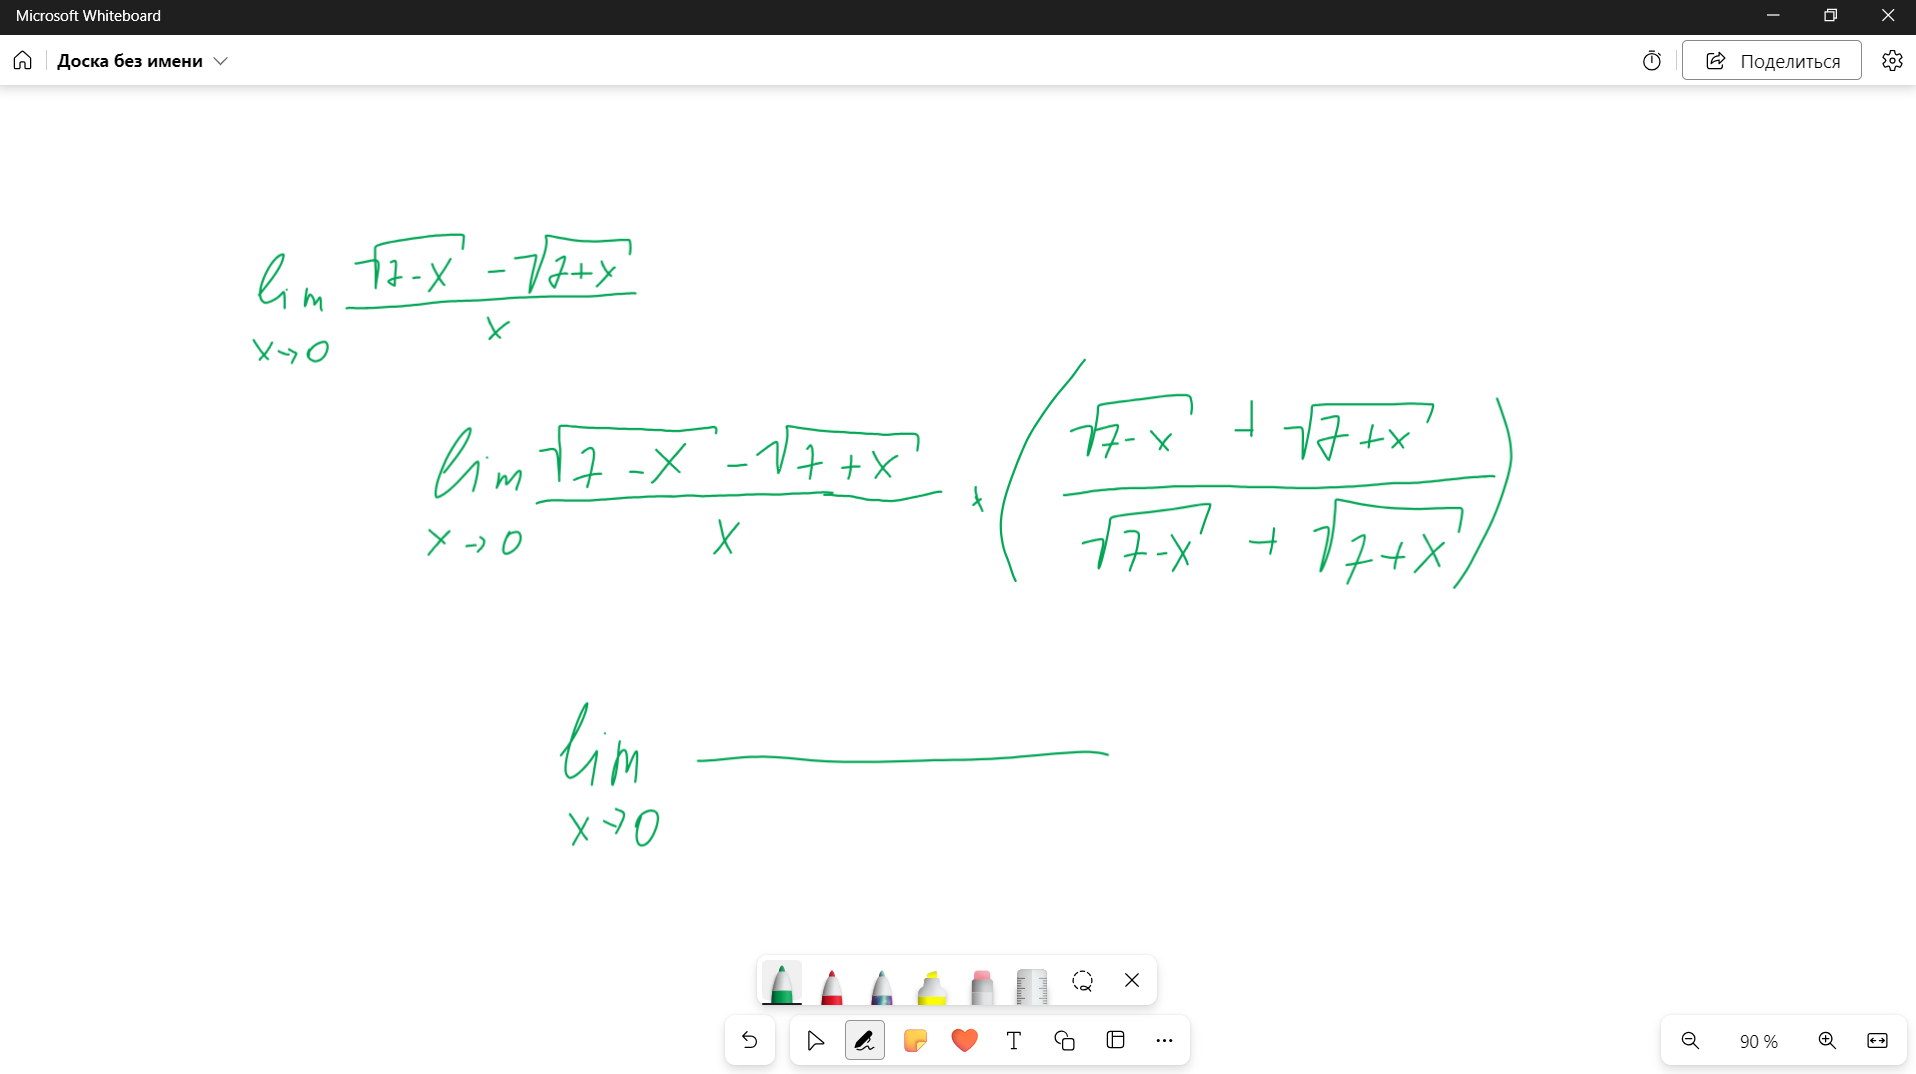 Microsoft Whiteboard
Доска без имени
Поделиться
lim √(7-x) - √(7+x)
x
x→0
lim √(7-x) - √(7+x) * ( √(7-x) + √(7+x) )
x √(7-x) + √(7+x)
x→0
lim
x→0
T
90 %